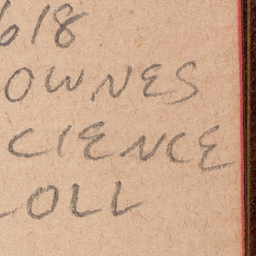 618
OWNES
CIENCE
OLL